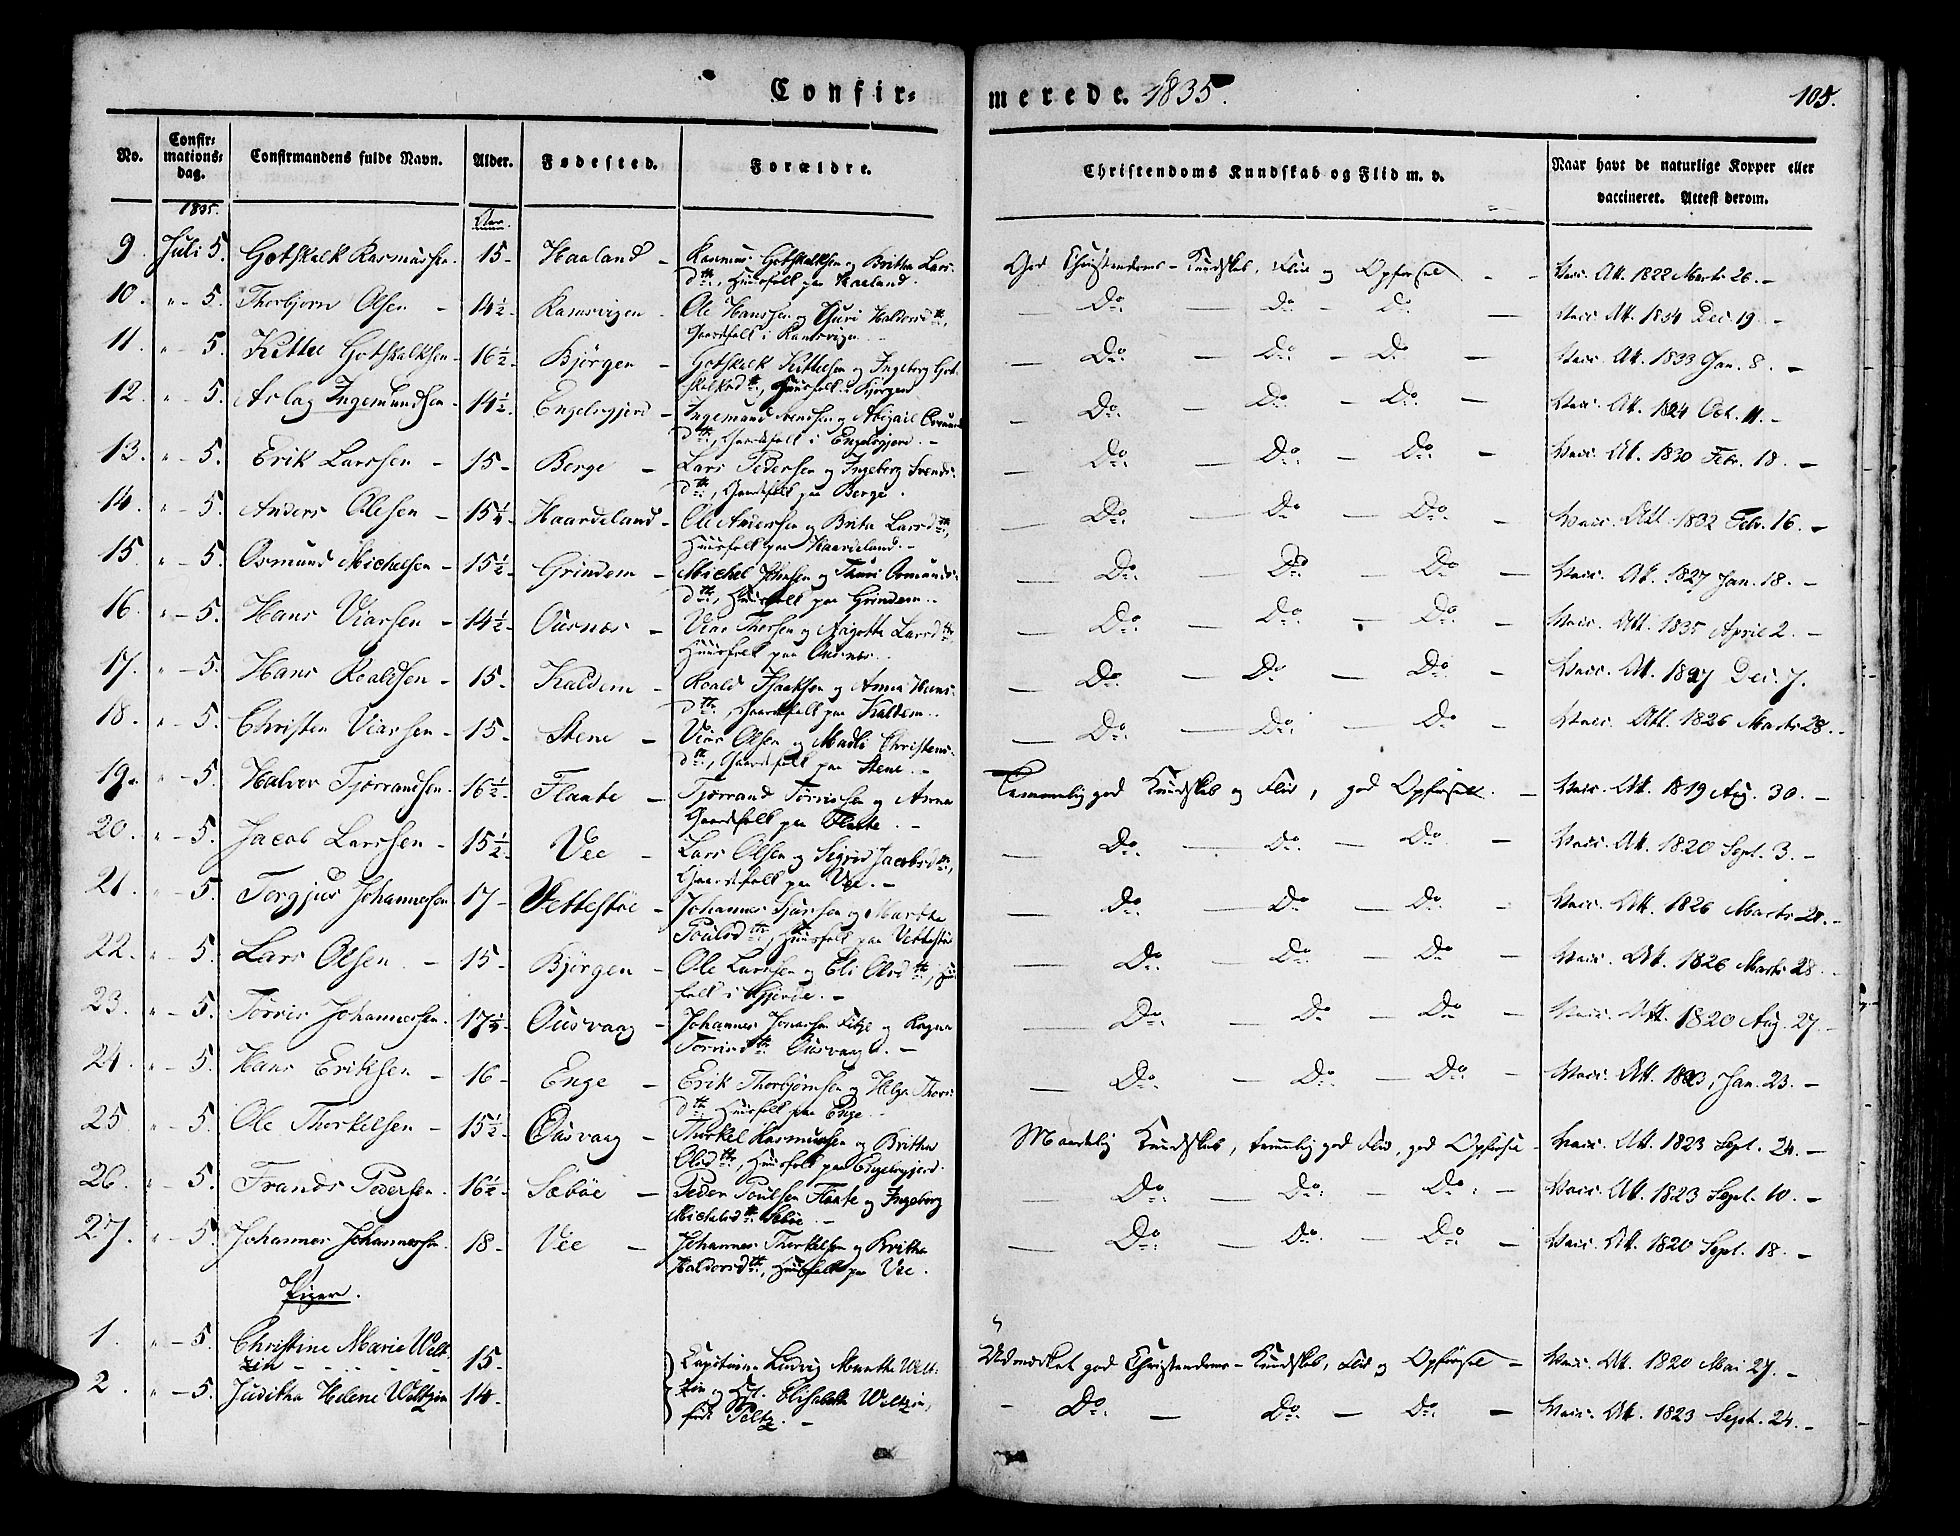 Confir=
merede. 1835.
105.
No.
Confir=
mations=
dag.
Confirmandens fulde Navn.
Alder.
Fødested.
Forældre.
Christendoms Kundskab og Flid m. v.
Naar havt de naturlige Kopper eller
vaccineret. Attest derom.
1835.
Aar.
9. Juli 5. Gotskalk Rasmussen. 15 - Haaland - Rasmus Gotskalksen og Britha Lars-
dtr., Huusfolk paa Haaland.
God Christendoms-Kundskab, Flid og Opførsel - - Vacc. Att. 1822 Marts 26. -
10. " - 5. Thorbjørn Olsen - 14½ - Ramsvigen - Ole Hanssen og Guri Haldorsdtr.,
Gaardfolk i Ramsvigen.
- Do - Do - Do - Vacc. Att. 1834 Dec. 19. -
11. " - 5. Kittel Gotskalksen - 16½ - Bjørgen - Gotskalk Kittelsen og Ingeborg Got-
skalksdtr., Huusfolk i Bjørgen
- Do - Do - Do - Vacc. Att. 1833 Jan. 8. -
12. " - 5. Aslag Ingemundsen. 14½ - Engelsgjerd - Ingemund Svendsen og Abigael Osmunds-
dtr., Gaardfolk i Engelsgjerd. -
- Do - Do - Do - Vacc. Att. 1824 Oct. 11. -
13. " - 5. Erik Larssen - 15 - Berge - Lars Pedersen og Ingeborg Svends-
dtr., Gaardfolk paa Berge.
- Do - Do - Do - Vacc. Att. 1830 Febr. 18. -
14. " - 5. Anders Olesen - 15¼ - Haardeland - Ole Anderssen og Brita Larsdtr.,
Huusfolk paa Haardeland. -
- Do - Do - Do - Vacc. Att. 1832 Febr. 16. -
15. " - 5. Osmund Michelsen - 15½ - Grindem - Michel Johnsen og Thuri Osmunds-
dtr., Huusfolk paa Grindem. -
- Do - Do - Do - Vacc. Att. 1827 Jan. 18. -
16. " - 5. Hans Viarsen - 14½ - Ousnes - Viar Thorsen og Aagotha Larsdtr.
Huusfolk paa Ousnes.
- Do - Do - Do - Vacc. Att. 1835 April 2. -
17. " - 5. Hans Roaldsen - 15 - Kaldem - Roald Isaksen og Anna Hans-
dtr., Gaardfolk paa Kaldem.
- Do - Do - Do - Vacc. Att. 1827 Dec. 7.
18. " - 5. Christen Viarsen - 15 - Stene - Viar Olsen og Madli Christens-
dtr., Gaardfolk paa Stene. -
- Do - Do - Do - Vacc. Att. 1826 Marts 28. -
19. " - 5. Halvor Tjørrandsen. 16½ - Flaate - Tjørrand Tørrissen og Anna
Gaardfolk paa Flaate. -
Temmelig god Kundskab og Flid, god Opførsel. - Vacc. Att. 1819 Aug. 30. -
20. " - 5. Jacob Larssen - 15½ - Vee - Lars Olsen og Sigrid Jacobsdtr.,
Gaardfolk paa Vee. -
- Do - Do - Do - Vacc. Att. 1820 Sept. 3. -
21. " - 5. Torgjus Johannessen 17 - Vettestøe - Johannes Sjursen og Martha
Poulsdtr., Huusfolk paa Vettestøe
- Do - Do - Do - Vacc. Att. 1826 Marts 28. -
22. " - 5. Lars Olsen - 15 - Bjørgen - Ole Larssen og Eli Olsdtr., Huus-
folk i Gjerde. -
- Do - Do - Do - Vacc. Att. 1826 Marts 28. -
23. " - 5. Tørris Johannessen. 17½ - Ousvaag - Johannes Jonassen Fitje og Ragna
Tørrisdtr. Ousvaag. -
- Do - Do - Do - Vacc. Att. 1820 Aug. 27. -
24. " - 5. Hans Eriksen - 16 - Enge - Erik Thorbjørnsen og Helga Thors-
dtr. Huusfolk paa Enge. -
- Do - Do - Do - Vacc. Att. 1823, Jan. 23. -
25. " - 5. Ole Thorkelsen - 15½ - Ousvaag - Thorkel Rasmussen og Britha
Olsdtr., Huusfolk paa Engelsgjerd.
Maadelig Kundskab, temmelig god Flid, god Opførsel - Vacc. Att. 1823 Sept. 24. -
26. " - 5. Frands Pedersen. 16½ - Sæbøe - Peder Poulsen Flaate og Ingeborg
Michelsdtr. Sæbøe. -
- Do - Do - Do - Vacc. Att. 1823 Sept. 10. -
27. " - 5. Johannes Johannessen. 18 - Vee - Johannes Thorkelsen og Britha
Haldorsdtr., Huusfolk paa Vee.
- Do - Do - Do - Vacc. Att. 1820 Sept. 18. -
Piger.
1. " - 5. Christine Marie Welt-
zin - 15 - Capitaine Ludvig Munthe Welt-
zin og Hst. Elisabeth Weltzin,
født Peltz. -
Udmærket god Christendoms-Kundskab, Flid og Opførsel - Vacc. Att. 1820 Mai 27. -
2. " - 5. Juditha Helene Weltzin 14 -
- Do - Do - Do - Vacc. Att. 1823 Sept. 24. -